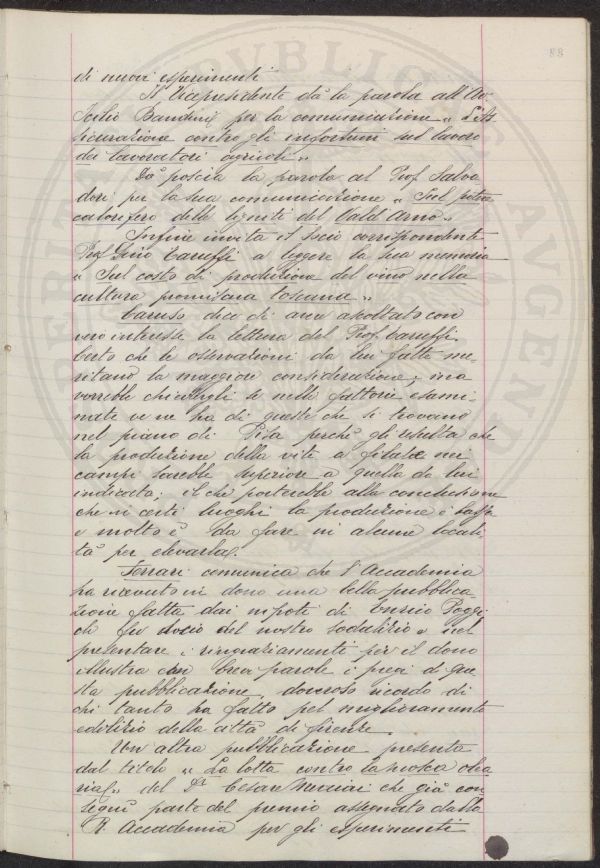 88
di nuovi esperimenti
Il Vicepresidente dà la parola all'Av.
Icilio Bandini per la comunicazione "L'As
sicurazione contro gli infortuni sul lavoro
dei lavoratori agricoli"
Dà poscia la parola al Prof. Salva
dori per la sua comunicazione "Sul potere
calorifero delle ligniti del Valdarno"
Infine invita il Socio corrispondente
Prof. Lino Taruffi a leggere la sua memoria
"Sul costo di produzione del vino nella
cultura promiscua toscana"
Caruso dice di aver ascoltato con
vero interesse la lettura del Prof. Taruffi.
Certo che le osservazioni da lui fatte me
ritano la maggiore considerazione; ma
vorrebbe chiedergli se nelle fattorie esami
nate ve ne ha di quelle che si trovano
nel piano di Pisa perchè gli risulta che
la produzione della vite a filare nei
campi sarebbe superiore a quella da lui
indicata; il che porterebbe alla conclusione
che in certi luoghi la produzione è bassa
e molto c'è da fare in alcune locali
tà per elevarla.
Ferrari comunica che l'Accademia
ha ricevuto in dono una bella pubblica-
zione fatta dai nipoti di Enrico Poggi
che fu socio del nostro sodalizio e nel
presentare i ringraziamenti per il dono
illustra con brevi parole i pregi di que
sta pubblicazione, doveroso ricordo di
chi tanto ha fatto pel miglioramento
edilizio della città di Firenze.
Un'altra pubblicazione presenta
dal titolo "La lotta contro la mosca olea
ria" del Dr. Cesare che già con
seguì parte del premio assegnato dalla
R. Accademia per gli esperimenti